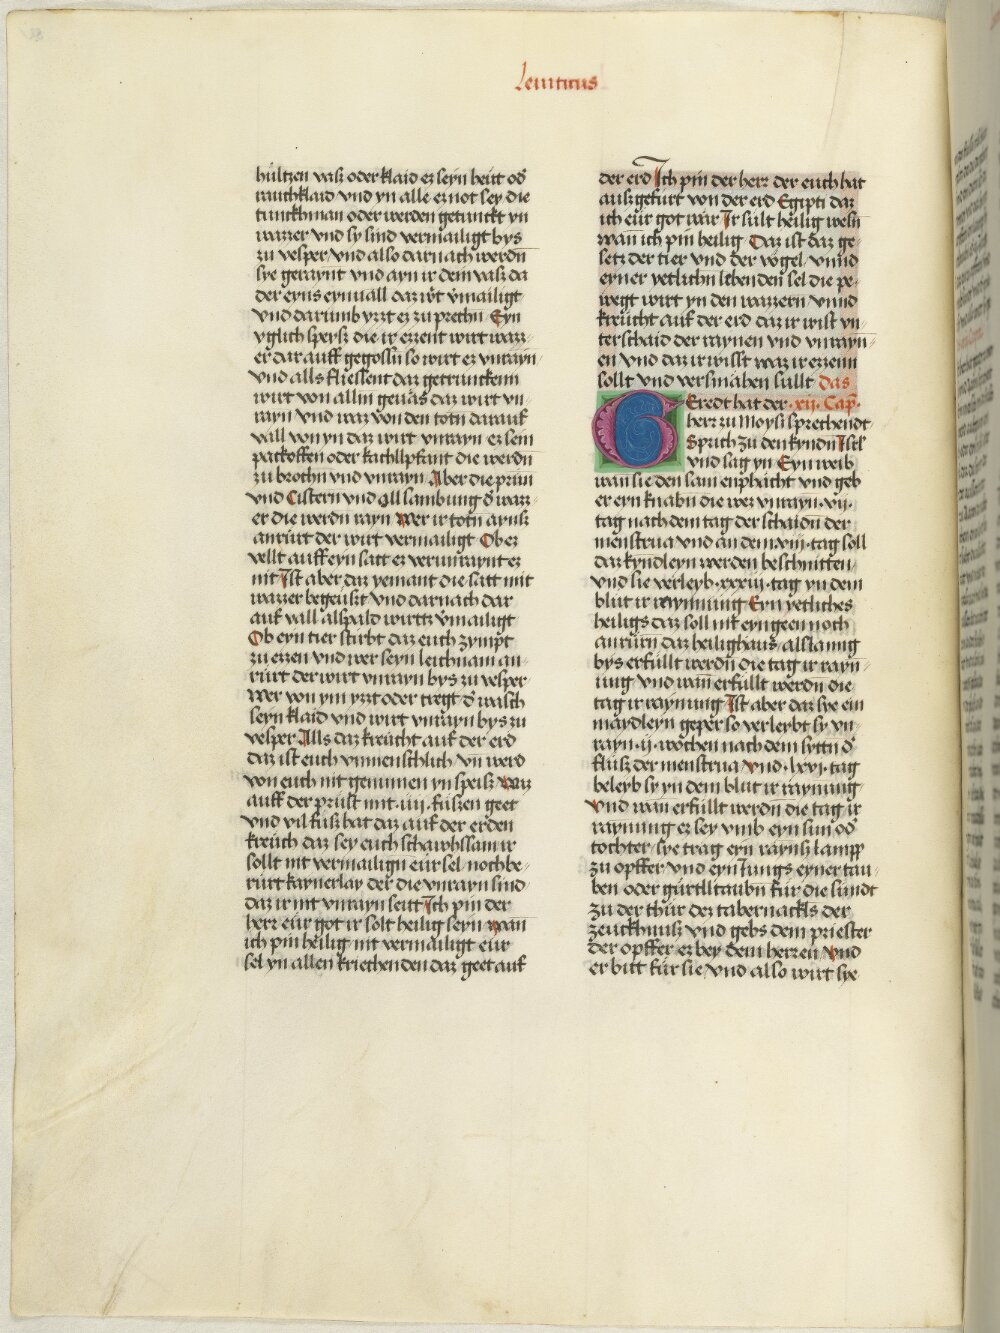 Leuiticus
hültzen vasz oder klaid ez seyn heut od̄
rauchklaid vnd yn alle ez not sey die
tunckhman oder werden getunckt yn
wazzer vnd sy sind vermailigt bys
zu vesper vnd also dar nach werdn̄
sye geraynt vnd ayn ir dem vasz da
der eyns eynuall daz wirt v̈mailigt
vnd darumb yzzt ez zu prechn̄ Eyn
yglich speysz die ir ezzent wirt wazz-
er dar auff gegossn̄ so wirt ez vnrayn
vnd alls fliessent daz getrunckenn
wirt von allm geuäs daz wirt vn
rayn vnd waz von den totn darauf
vall von yn daz wirt vnrayn ez sein
packoffen oder kachllpfant die werdn̄
zu brochn̄ vnd vnrayn Aber die prün
vnd Cistern vnd all sambung d̄ wazz-
er die werdn̄ rayn Wer ir totn aynsz
anrürt der wirt vermailigt Ob ez
vellt auff eyn satt ez verunraynt ez
nit Ist aber daz yemant die satt mit
wazzer begeuszt vnd darnach dar
auf vall alspald wirtz v̈mailigt
Ob eyn tier stirbt daz euch zympt
zu ezzen vnd wer seyn leichnam an-
rürt der wirt vnrayn bys zu vesper
Wer von ym yzzt oder tregt d̄ wasch
seyn klaid vnd wirt vnrayn bys zu
vesper Alls daz kreücht auf der erd
daz ist euch vnmenschlich vn werd
von euch nit genumen yn speisz Waz
auff der prüst mit .iiij. füszen geet
vnd vil füsz hat daz auf der erden
kreüch daz sey euch schawhssam ir
sollt nit vermailign eür sel noch be-
rürt kaynerlay der die vnrayn sind
daz ir nit vnrayn seitt Ich pin der
herz eür got ir solt heilig seyn wan
ich pin heilig nit vermäiligt eür
sel yn allen kriechenden daz geet auf
der erd Ich pin der herz der euch hat
auszgefürt von der erd Egipti daz
ich eür got wär Ir sült heilig wesn̄
wan ich pin heilig Daz ist daz ge-
setz der tier vnd der vögel vnnd
eyner yetlichn̄ lebenden sel die pe-
wegt wirt yn den wazzern vnnd
kreücht auf der erd daz ir wist vn-
terschaid der raynen vnd vnrayn-
en vnd daz ir wisst waz ir ezzenn
sollt vnd versmähen süllt das
Geredt hat der .xij. Cap̄.
herz zu Moysi sprechendt
Sprich zu den kyndn̄ Isrl̄
vnd sag yn Eyn weib
wan sie den sam enphächt vnd geb
er eyn knabn̄ die wez vnrayn .vij.
tag nach dem tag der schaidn̄ der
menstrua vnd an dem .viij. tag soll
daz kyndleyn werden beschnitten
vnd sie verleyb .xxxiij. tag yn dem
blut ir raynnung Eyn yetliches
heiligs daz soll nit eyngeen noch
anrürn daz heilighaus als lanng
bys erfüllt werdn̄ die tag ir rayn-
ung vnd wan̄ erfüllt werdn̄ die
tag ir raynung Ist aber daz sye ein
maydleyn geper so verleybt sy vn-
rayn .ij. wochen nach dem syttn̄ d̄
flusz der menstrua vnd .lxvj. tag
beleyb sy yn dem blut ir raynung
vnd wan erfüllt werdn̄ die tag ir
raynung ez sey vmb eyn sun od̄
tochter sye trag eyn raynsz lampp
zu opffer vnd eyn Jungs eyner tau-
ben oder gürtlltaubn̄ für die sündt
zu der thür dez tabernackls der
zeuckhnusz vnd gebs dem priester
der opffer ez bey dem herzen vnd
er bitt für sie vnd also wirt sye